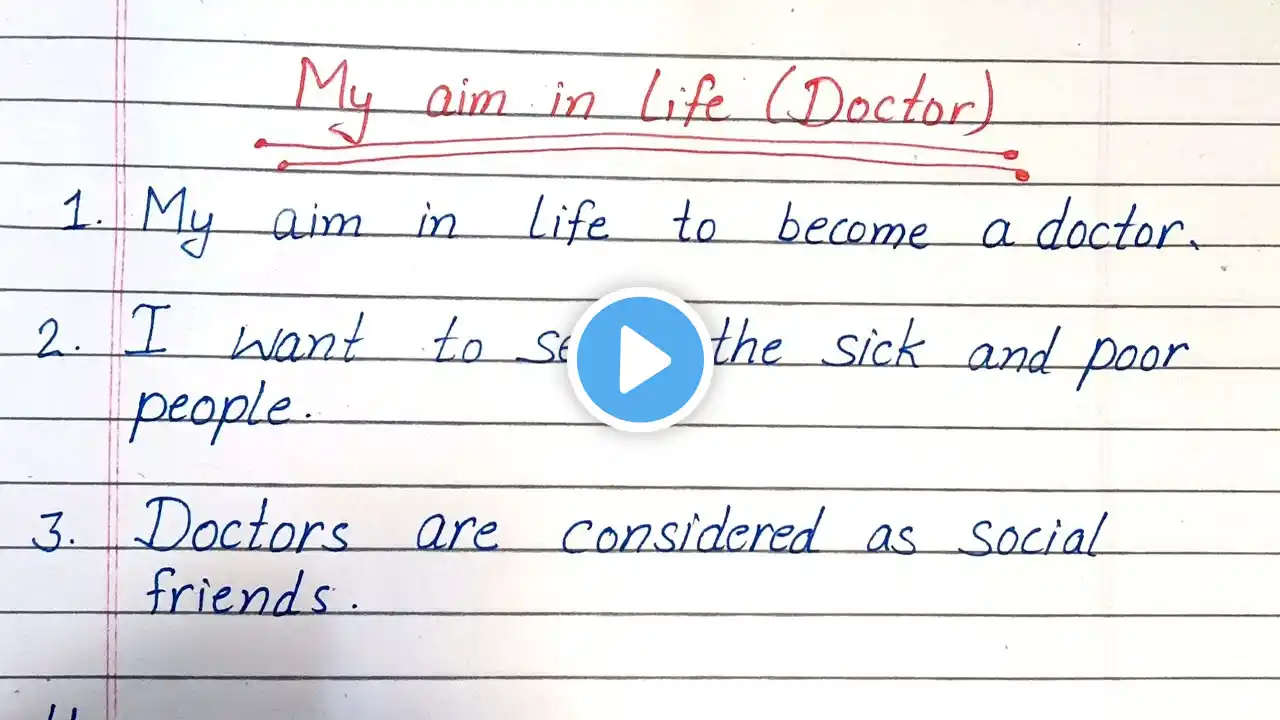 My aim in Life (Doctor)
1. My aim in life to become a doctor.
2. I want to the sick and poor
people.
3. Doctors are considered as social
friends.